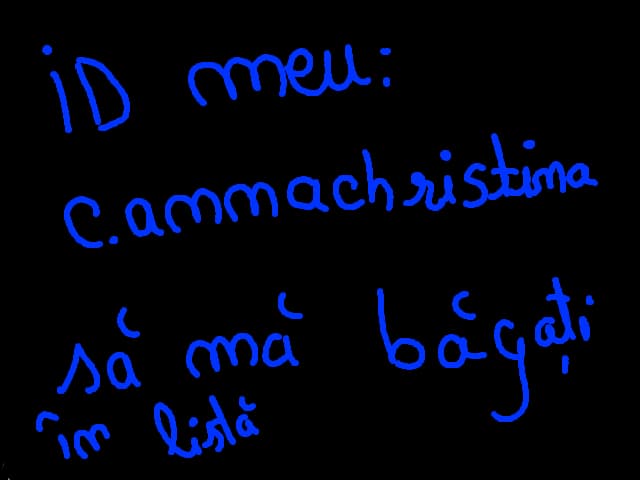 ID meu:
c.annachristina
să mă băgați
în listă